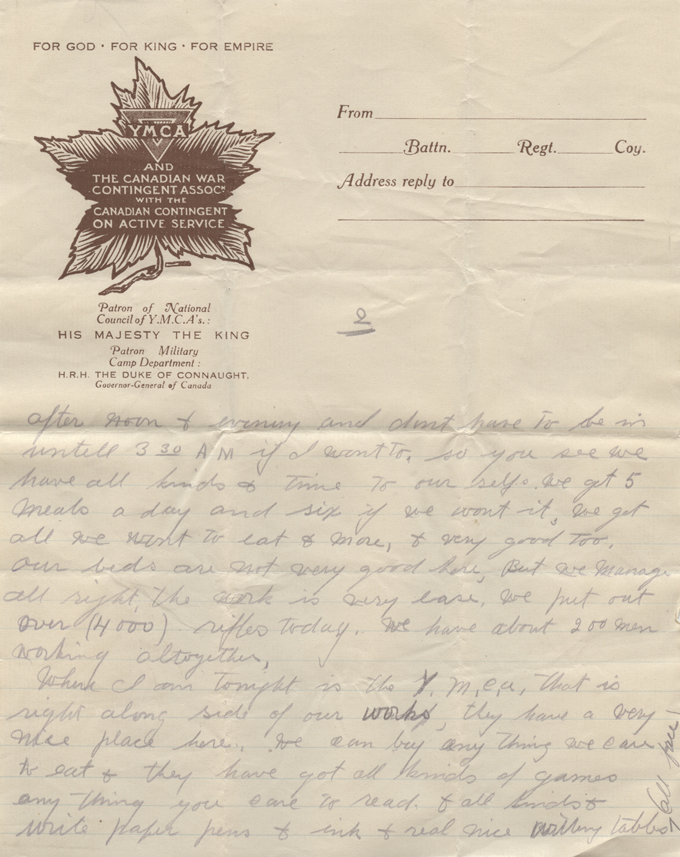 FOR GOD · FOR KING · FOR EMPIRE
YMCA
AND
THE CANADIAN WAR
CONTINGENT ASSOCN
WITH THE
CANADIAN CONTINGENT
ON ACTIVE SERVICE
Patron of National
Council of Y.M.C.A's.:
HIS MAJESTY THE KING
Patron Military
Camp Department:
H.R.H. THE DUKE OF CONNAUGHT.
Governor-General of Canada
From
Battn. Regt. Coy.
Address reply to
2
after noon & evening and dont have to be in
untill 3 30 A M if I want to. so you see we
have all kinds & time to our self. We get 5
meals a day and six if we want it, We get
all we want to eat & more, & very good too.
our beds are not very good here, But we manage
all right, The work is very ease. We put out
over (4000) rifles today. We have about 200 men
working altogether,
Where I am tonight is the Y.M.C.A, that is
right along side of our works, they have a very
nice place here. We can buy any thing we care
to eat & they have got all kinds of games
any thing you care to read & all kinds &
write paper pens & ink & real nice writting tables
all free!